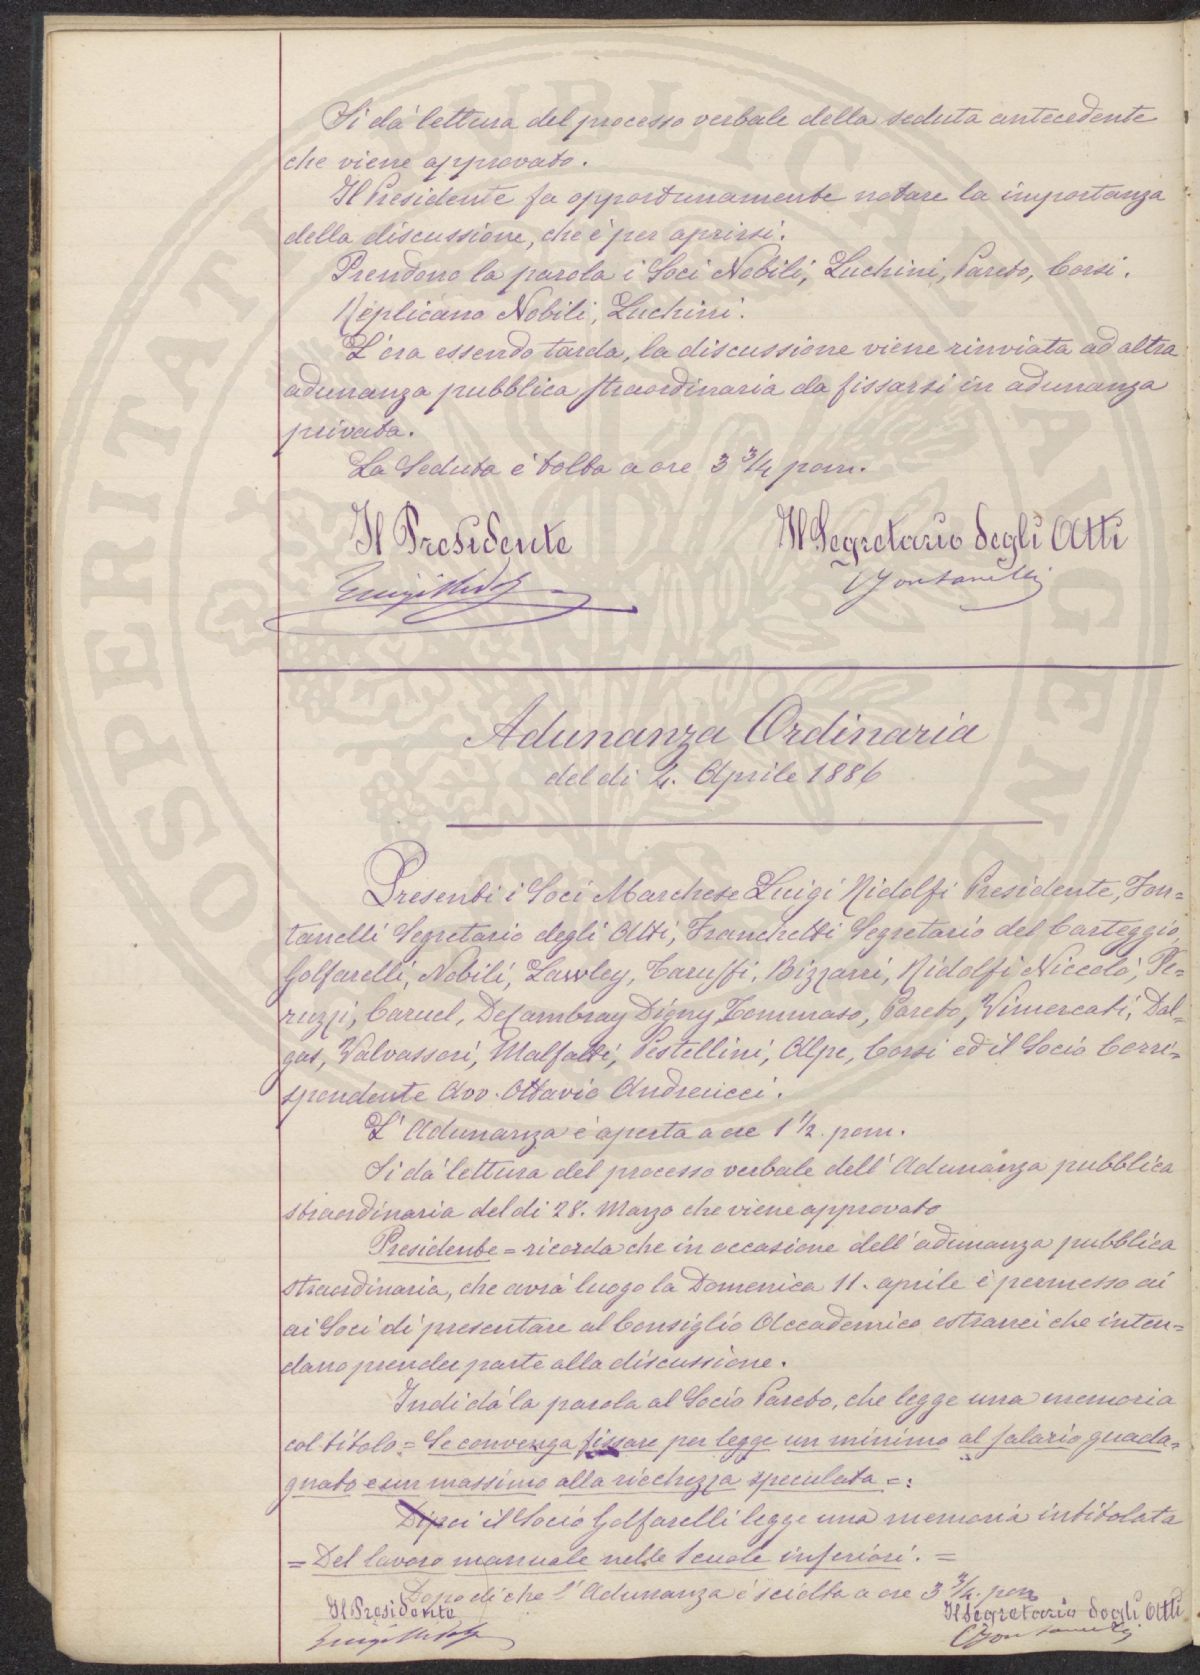 Si dà lettura del processo verbale della seduta antecedente
che viene approvato.
Il Presidente fa opportunamente notare la importanza
della discussione, che è per aprirsi.
Prendono la parola i Soci Nobili, Luchini, Pareto, Corsi.
Replicano Nobili, Luchini.
L'ora essendo tarda, la discussione viene rinviata ad altra
adunanza pubblica straordinaria da fissarsi in adunanza
privata.
La Seduta è tolta a ore 3 3/4 pom.
Il Presidente
Il Segretario degli Atti
Luigi Ridolfi
C Fontanelli
Adunanza Ordinaria
del di 4. Aprile 1886
Presenti i Soci Marchese Luigi Ridolfi Presidente, Fon=
tanelli Segretario degli Atti, Franchetti Segretario del Carteggio,
Golfarelli, Nobili, Lawley, Caruffi, Bizzarri, Ridolfi Niccolò, Pe=
ruzzi, Caruel, De Cambray Digny Tommaso, Pareto, Vimercati, Dal=
gas, Valvassori, Malfatti, Pestellini, Alpe, Corsi ed il Socio Corri=
spondente Avv. Ottavio Andreucci.
L'Adunanza è aperta a ore 1 1/2. pom.
Si dà lettura del processo verbale dell'Adunanza pubblica
straordinaria del di 28. Marzo che viene approvato
Presidente = ricorda che in occasione dell'adunanza pubblica
straordinaria, che avrà luogo la Domenica 11. aprile è permesso ai
ai Soci di presentare al Consiglio Accademico estranei che inten=
dano prender parte alla discussione.
Indi dà la parola al Socio Pareto, che legge una memoria
col titolo = Se convenga fissare per legge un minimo al salario guada=
gnato e un massimo alla ricchezza speculata =:
Dipoi il Socio Golfarelli legge una memoria intitolata
= Del lavoro manuale nelle Scuole inferiori. =
Dopo di che l'Adunanza è sciolta a ore 3 3/4. pom
Il Presidente
Il Segretario degli Atti
Luigi Ridolfi
C Fontanelli
SPERITATI PUBLICAE AUGENDAE